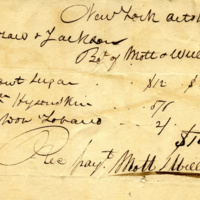 New York octob
& Jackson
Bot of Mott & Will
Sugar $12 $
Hysonskin
Tobacco 2/
$1
Rec payt Mott & Will